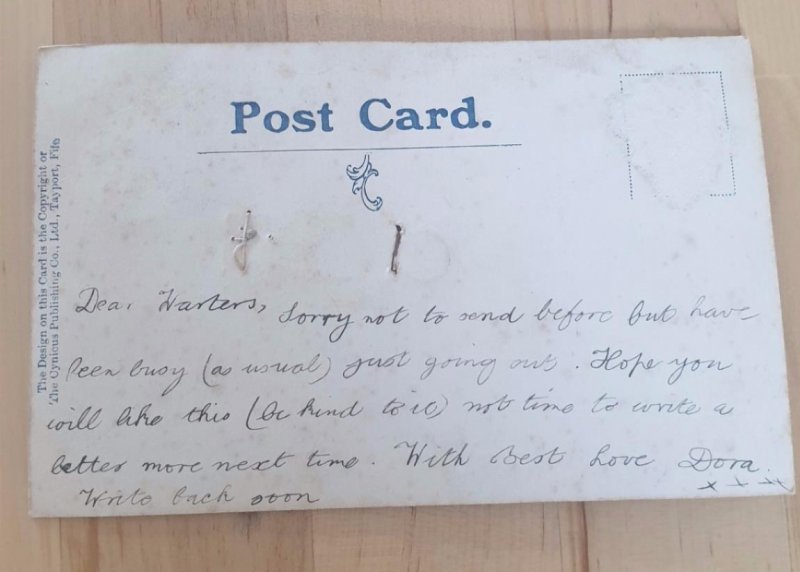 Post Card.
The Design on this Card is the Copyright of
The Cynicus Publishing Co., Ltd., Tayport, Fife
Dear Harters, Sorry not to send before but have
been busy (as usual) just going out. Hope you
will like this (be kind to it) not time to write a
letter more next time. With Best Love Dora.
x x x
Write back soon